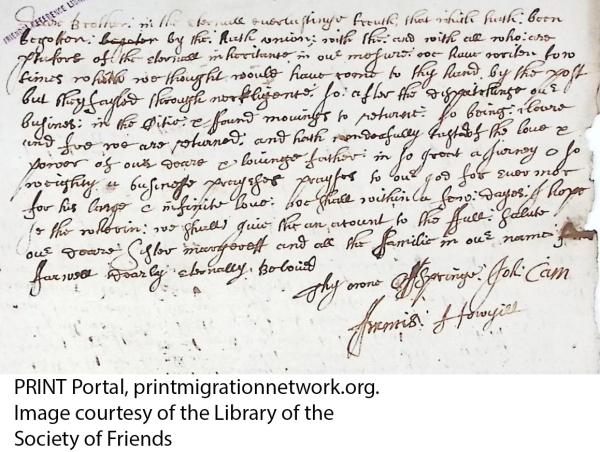 FRIENDS REFERENCE LIBRARY
Deare Brother: in the eternall everlastinge treuth, that which hath: been
begotten: by the: hath union: with the: and with all who: are
ptakers of the eternall inheritance in our mesure: we have writen fow
times which we thought would have come to thy hand by the post
but they fayled through neckligence: so: after the dispatchinge our
busines: in the Citie: & found movings to returne: so being: cleare
and free we are returned: and hath wonderfully tasted the love &
power of our deare & lovinge father: in so great a Jurney & so
weighty a busines prayses prayses to our god for ever mor
for his large & infinite love: we shall within a few: dayes: I hope
se the wherin: we shall: give the an acount to the full: salute
our deare: sister margerett and all the familie in our name
farwell dearly eternally beloved
Thy owne ofspringe: Joh: Cam
Francis: Howgill
PRINT Portal, printmigrationnetwork.org.
Image courtesy of the Library of the
Society of Friends